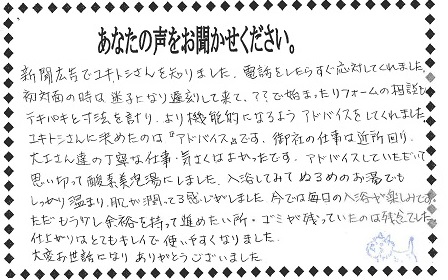 あなたの声をお聞かせください。
新聞広告でユキトシさんを知りました。電話をしたらすぐ応対してくれました。
初対面の時は迷子となり遅刻して来て、??で始まったリフォームの相談も
テキパキと寸法を計り、より機能的になるようアドバイスをしてくれました。
ユキトシさんに決めたのは『アドバイス』です。御社の仕事は近所回り、
大工さん達の丁寧な仕事・気さくはよかったです。アドバイスしていただいて
思い切って酸素美泡湯にしました。入浴してみてぬるめのお湯でも
しっかり温まり、肌が潤ってる感じがしました。今では毎日の入浴が楽しみです。
ただもう少し余裕を持って進めたい所・ゴミが残っていたのは残念でした。
仕上がりはとてもキレイで使いやすくなりました。
大変お世話になりありがとうございました。